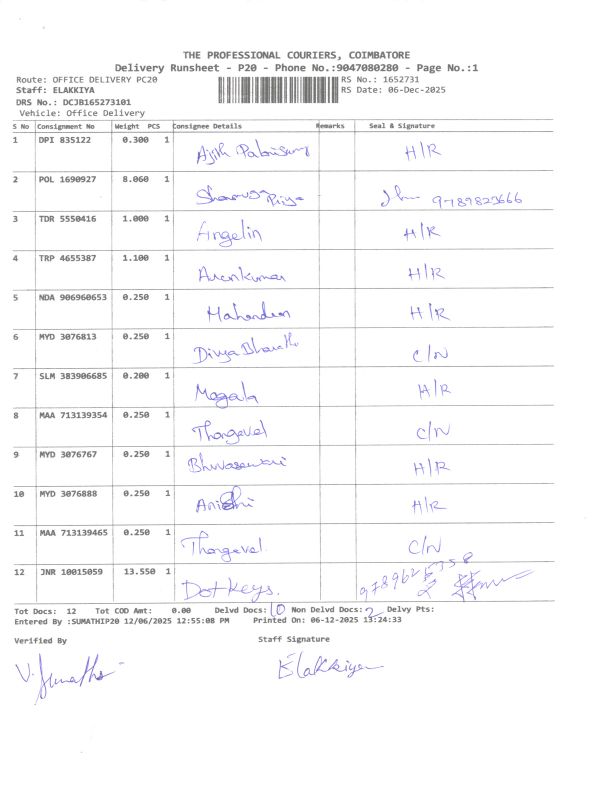 THE PROFESSIONAL COURIERS, COIMBATORE
Delivery Runsheet - P20 - Phone No.:9047080280 - Page No.:1
Route: OFFICE DELIVERY PC20 RS No.: 1652731
Staff: ELAKKIYA RS Date: 06-Dec-2025
DRS No.: DCJB165273101
Vehicle: Office Delivery
S No Consignment No Weight PCS Consignee Details Remarks Seal & Signature
1 DPI 835122 0.300 1 Ajith H/R
2 POL 1690927 8.060 1 Priya
3 TDR 5550416 1.000 1 Angelin H/R
4 TRP 4655387 1.100 1 Arunkumar H/R
5 NDA 906960653 0.250 1 H/R
6 MYD 3076813 0.250 1 Divya Bharathi C/N
7 SLM 383906685 0.200 1 Megala H/R
8 MAA 713139354 0.250 1 Thangavel C/N
9 MYD 3076767 0.250 1 Bhuvasewari H/R
10 MYD 3076888 0.250 1 H/R
11 MAA 713139465 0.250 1 Thangavel C/N
12 JNR 10015059 13.550 1 Dot keys.
Tot Docs: 12 Tot COD Amt: 0.00 Delvd Docs: 10 Non Delvd Docs: 2 Delvy Pts:
Entered By :SUMATHIP20 12/06/2025 12:55:08 PM Printed On: 06-12-2025 13:24:33
Verified By Staff Signature
V. Sumathi Elakkiya